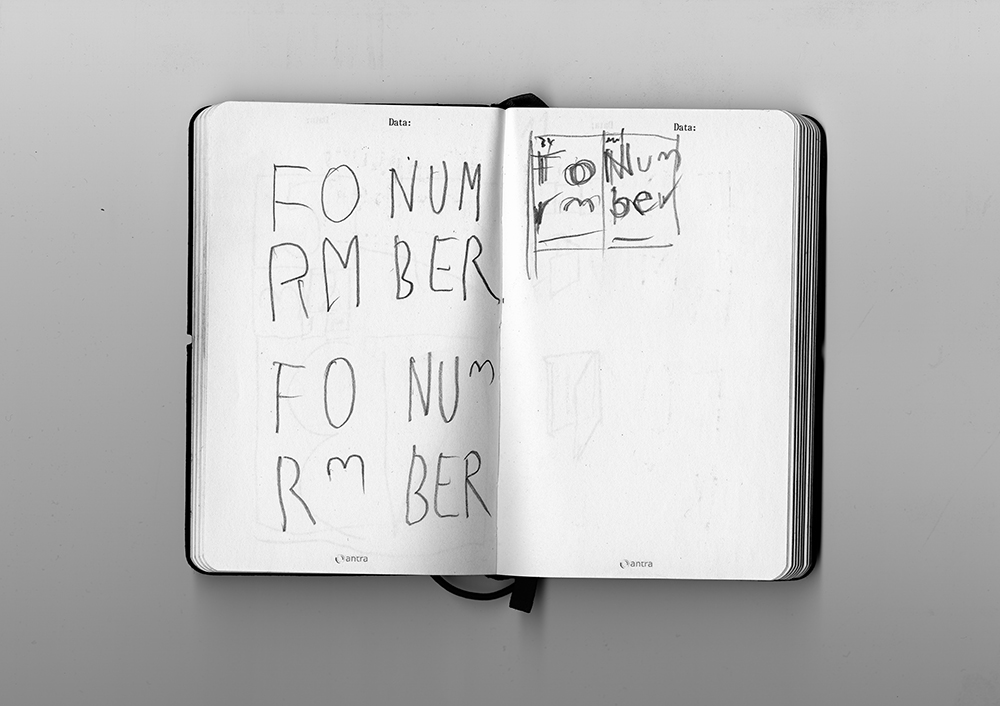 Data:
FO NUM
RM BER
FO NUm
Rm BER
antra
Data:
Fo Num
rm ber
antra